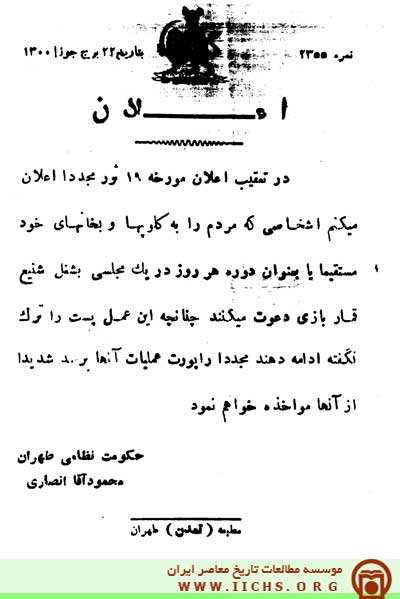 نمره ۲۳۵۵
بتاریخ ۲۲ برج جوزا ۱۳۰۰
اعلان
در تعقیب اعلان مورخه ۱۹ ثور مجددا اعلان
میکنم اشخاصی که مردم را به کلوپها و بخانهای خود
مستقیما یا بعنوان دوره هر روز در یك مجلسی بشغل شنیع
قمار بازی دعوت میکنند چنانچه این عمل پست را ترك
نگفته ادامه دهند مجددا راپورت عملیات آنها برسد شدیدا
از آنها مواخذه خواهم نمود
حکومت نظامی طهران
محمودآقا انصاری
مطبعه (تمدن) طهران
موسسه مطالعات تاریخ معاصر ایران
WWW.IICHS.ORG